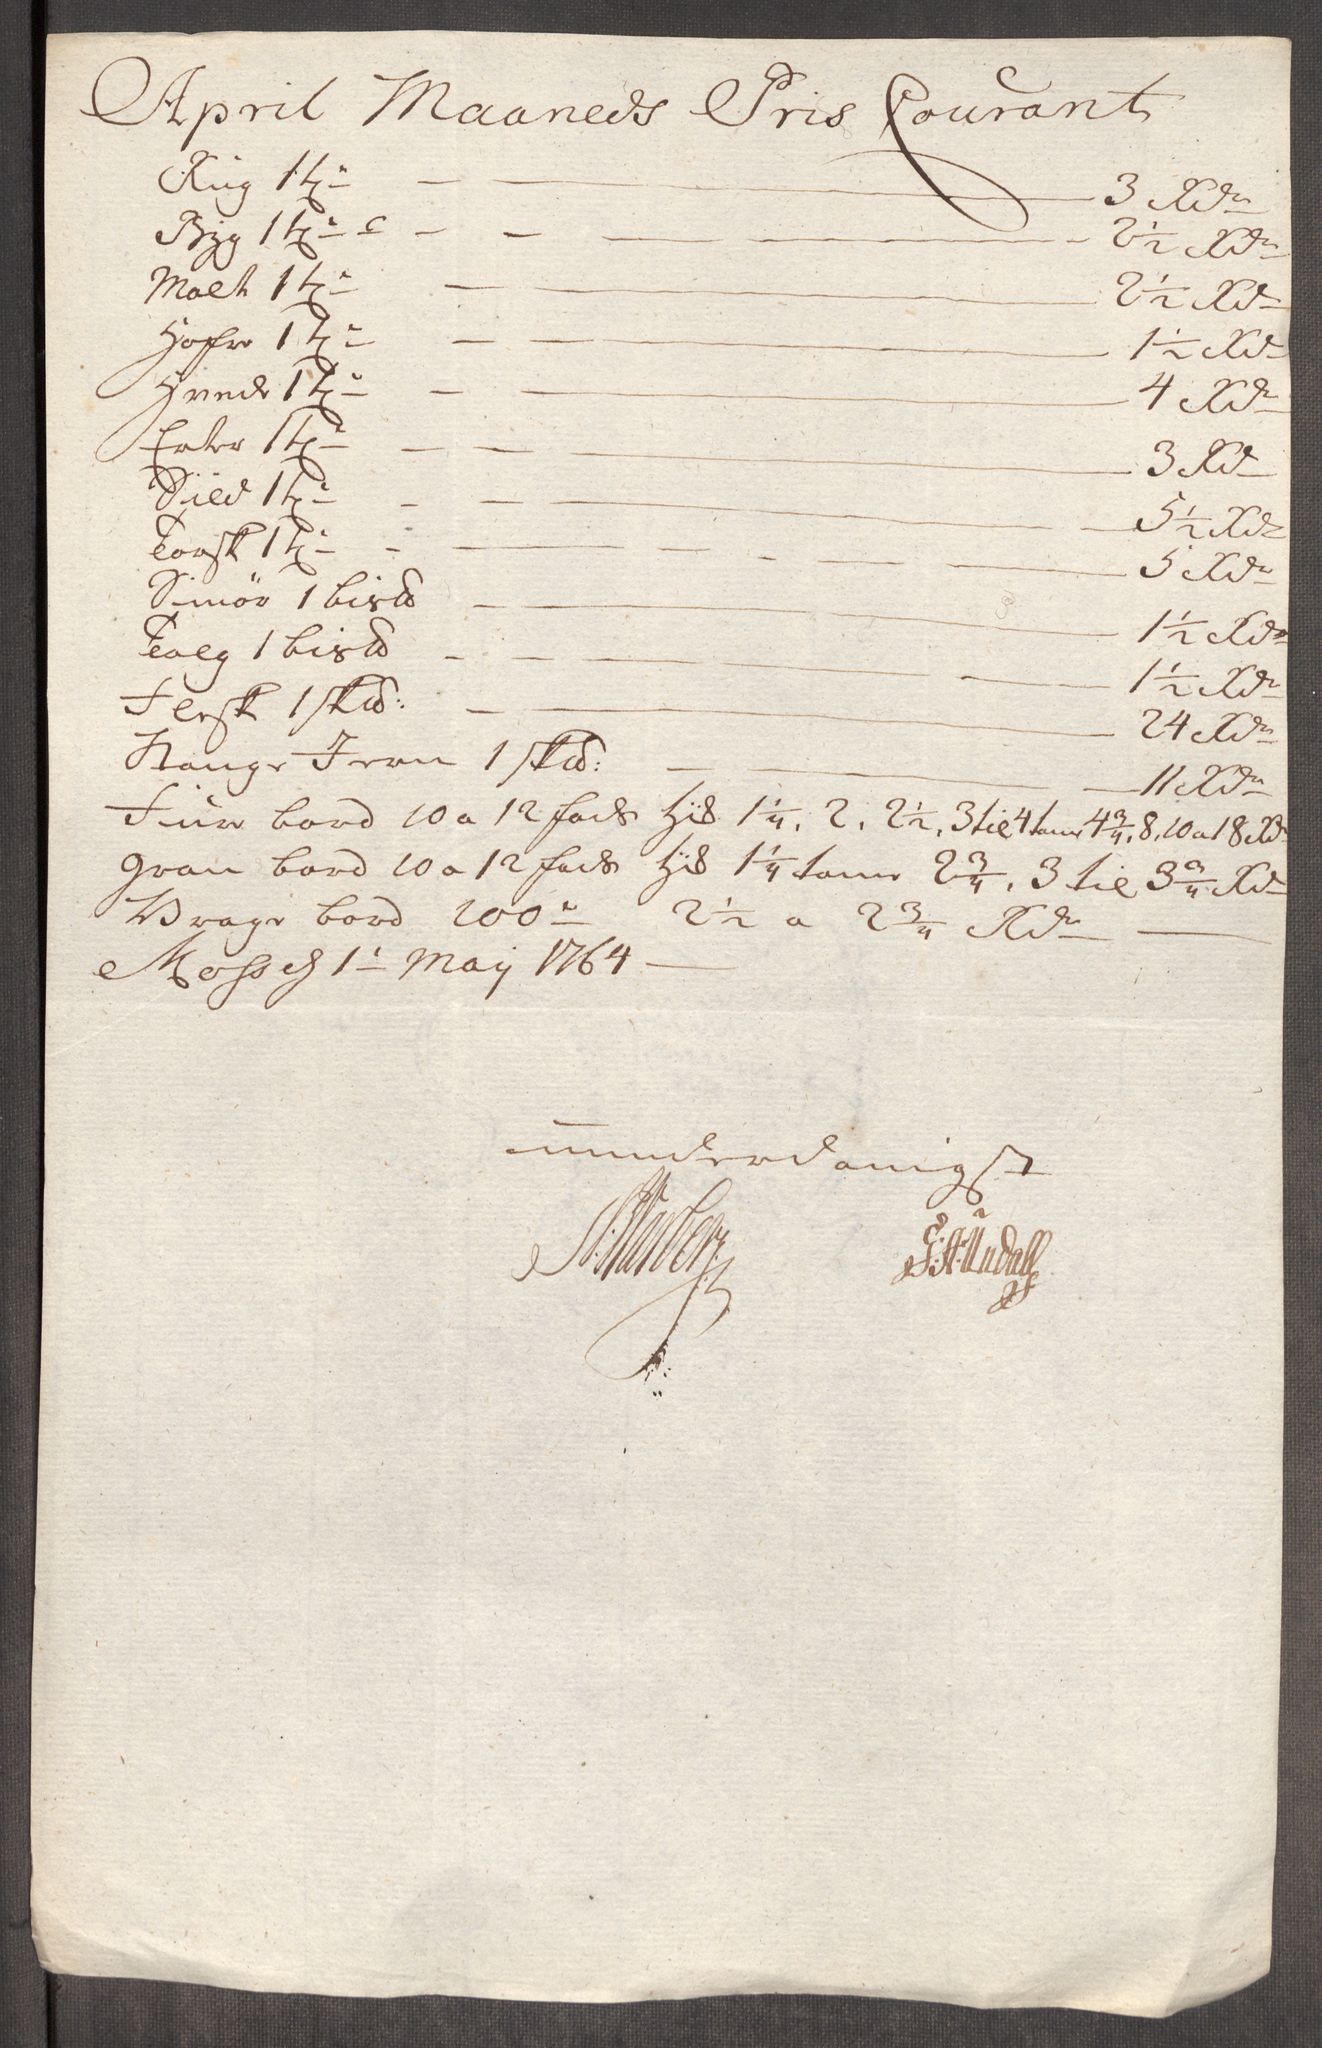 April Maaneds Pris Courant
Rüg 1 tø: — — — 3 Rdr
Byg 1 tø: — — — 2½ Rdr
Malt 1 tø: — — — 2½ Rdr
Hafre 1 tø: — — — 1½ Rdr
Hvede 1 tø: — — — 4 Rdr
Erter 1 tø: — — — 3 Rdr
Sild 1 tø: — — — 5½ Rdr
Torsk 1 tø: — — — 5 Rdr
Smör 1 bislb — — — 1½ Rdr
Talg 1 bislb — — — 1½ Rdr
Flesk 1 sklb: — — — 24 Rdr
Stange Jern 1 sklb: — — — 11 Rdr
Füre bord 10 a 12 fods tÿk 1¼, 2, 2½, 3 til 4 tome 4¾, 8, 10 a 18 Rdr
Gran bord 10 a 12 fods tÿk 1¼ tome 2¾, 3 til 3¾ Rdr
Vrage bord 100: 2½ a 2¾ Rdr —
Moss d 1: Maÿ 1764 —
underdanigst